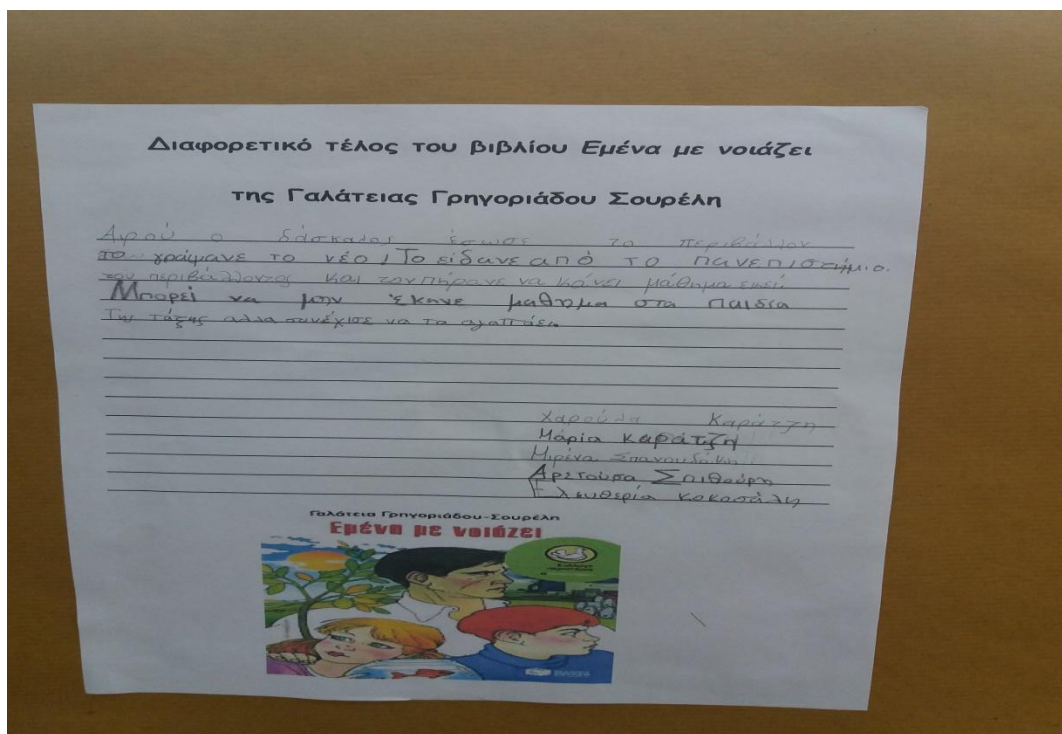 Διαφορετικό τέλος του βιβλίου Εμένα με νοιάζει
της Γαλάτειας Γρηγοριάδου Σουρέλη
Αφού ο δάσκαλος έσωσε το περιβάλλον
το γράψανε το νέο, Το είδανε από το πανεπιστήμιο.
του περιβάλλοντος και τον πήρανε να κάνει μάθημα εκεί.
Μπορεί να μην έκανε μαθημα στα παιδία
Της τάξης αλλα συνέχισε να τα αγαπάει.
Χαρούλα Καράτζη
Μάρία Καράτζή
Μιρένα Σπανουδάκη
Αρετούσα Σπιθούρη
Ελευθερία Κοκοσάλη
Γαλάτεια Γρηγοριάδου-Σουρέλη
Εμένα με νοιάζει